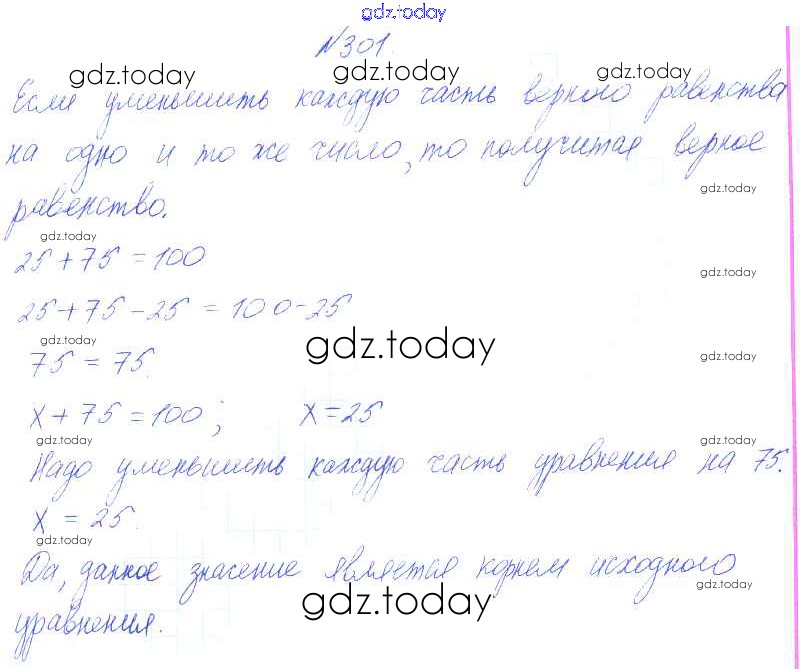 gdz.today
№301.
gdz.today gdz.today gdz.today
Если уменьшить каждую часть верного равенства
на одно и то же число, то получится верное
gdz.today
равенство.
gdz.today
25+75=100
gdz.today
25+75-25=100-25
gdz.today
gdz.today
75=75.
gdz.today
x+75=100; x=25
gdz.today gdz.today
Надо уменьшить каждую часть уравнения на 75.
x=25.
gdz.today
Да, данное значение является корнем исходного
gdz.today
gdz.today
уравнения.